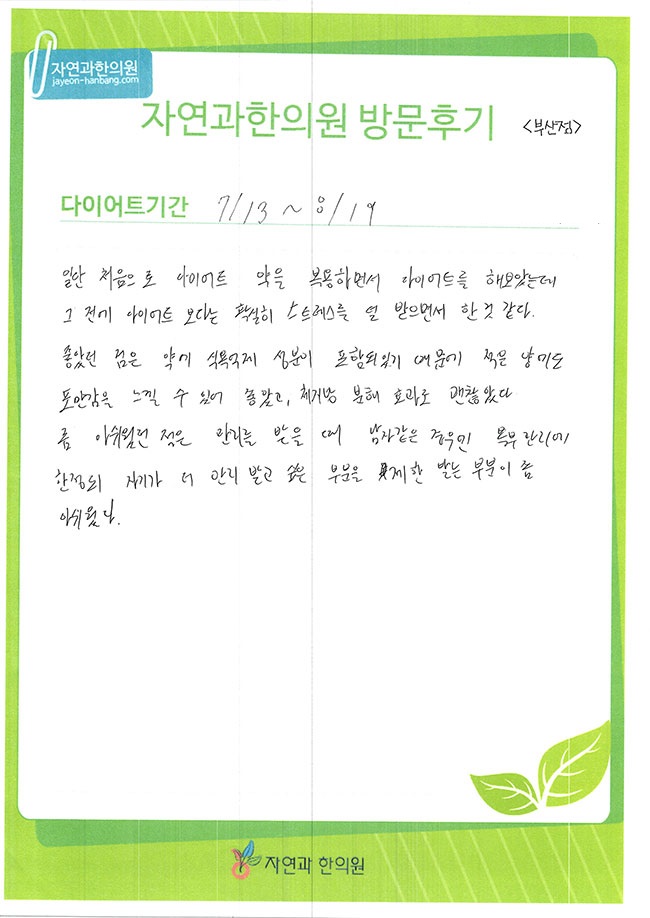 자연과한의원
jayeon-hanbang.com
자연과한의원 방문후기 <부산점>
다이어트기간 7/13 ~ 8/19
일단 처음으로 다이어트 약을 복용하면서 다이어트를 해보았는데
그 전에 다이어트 보다는 확실히 스트레스를 덜 받으면서 한 것 같다.
좋았던 점은 약에 식욕억제 성분이 포함되있기 때문에 적은 양에도
포만감을 느낄 수 있어 좋았고, 체지방 분해 효과도 괜찮았다
좀 아쉬웠던 점은 관리를 받을 때 남자같은 경우엔 복부관리에
한정되 자기가 더 관리 받고 싶은 부분을 제한 받는 부분이 좀
아쉬웠다.
자연과 한의원